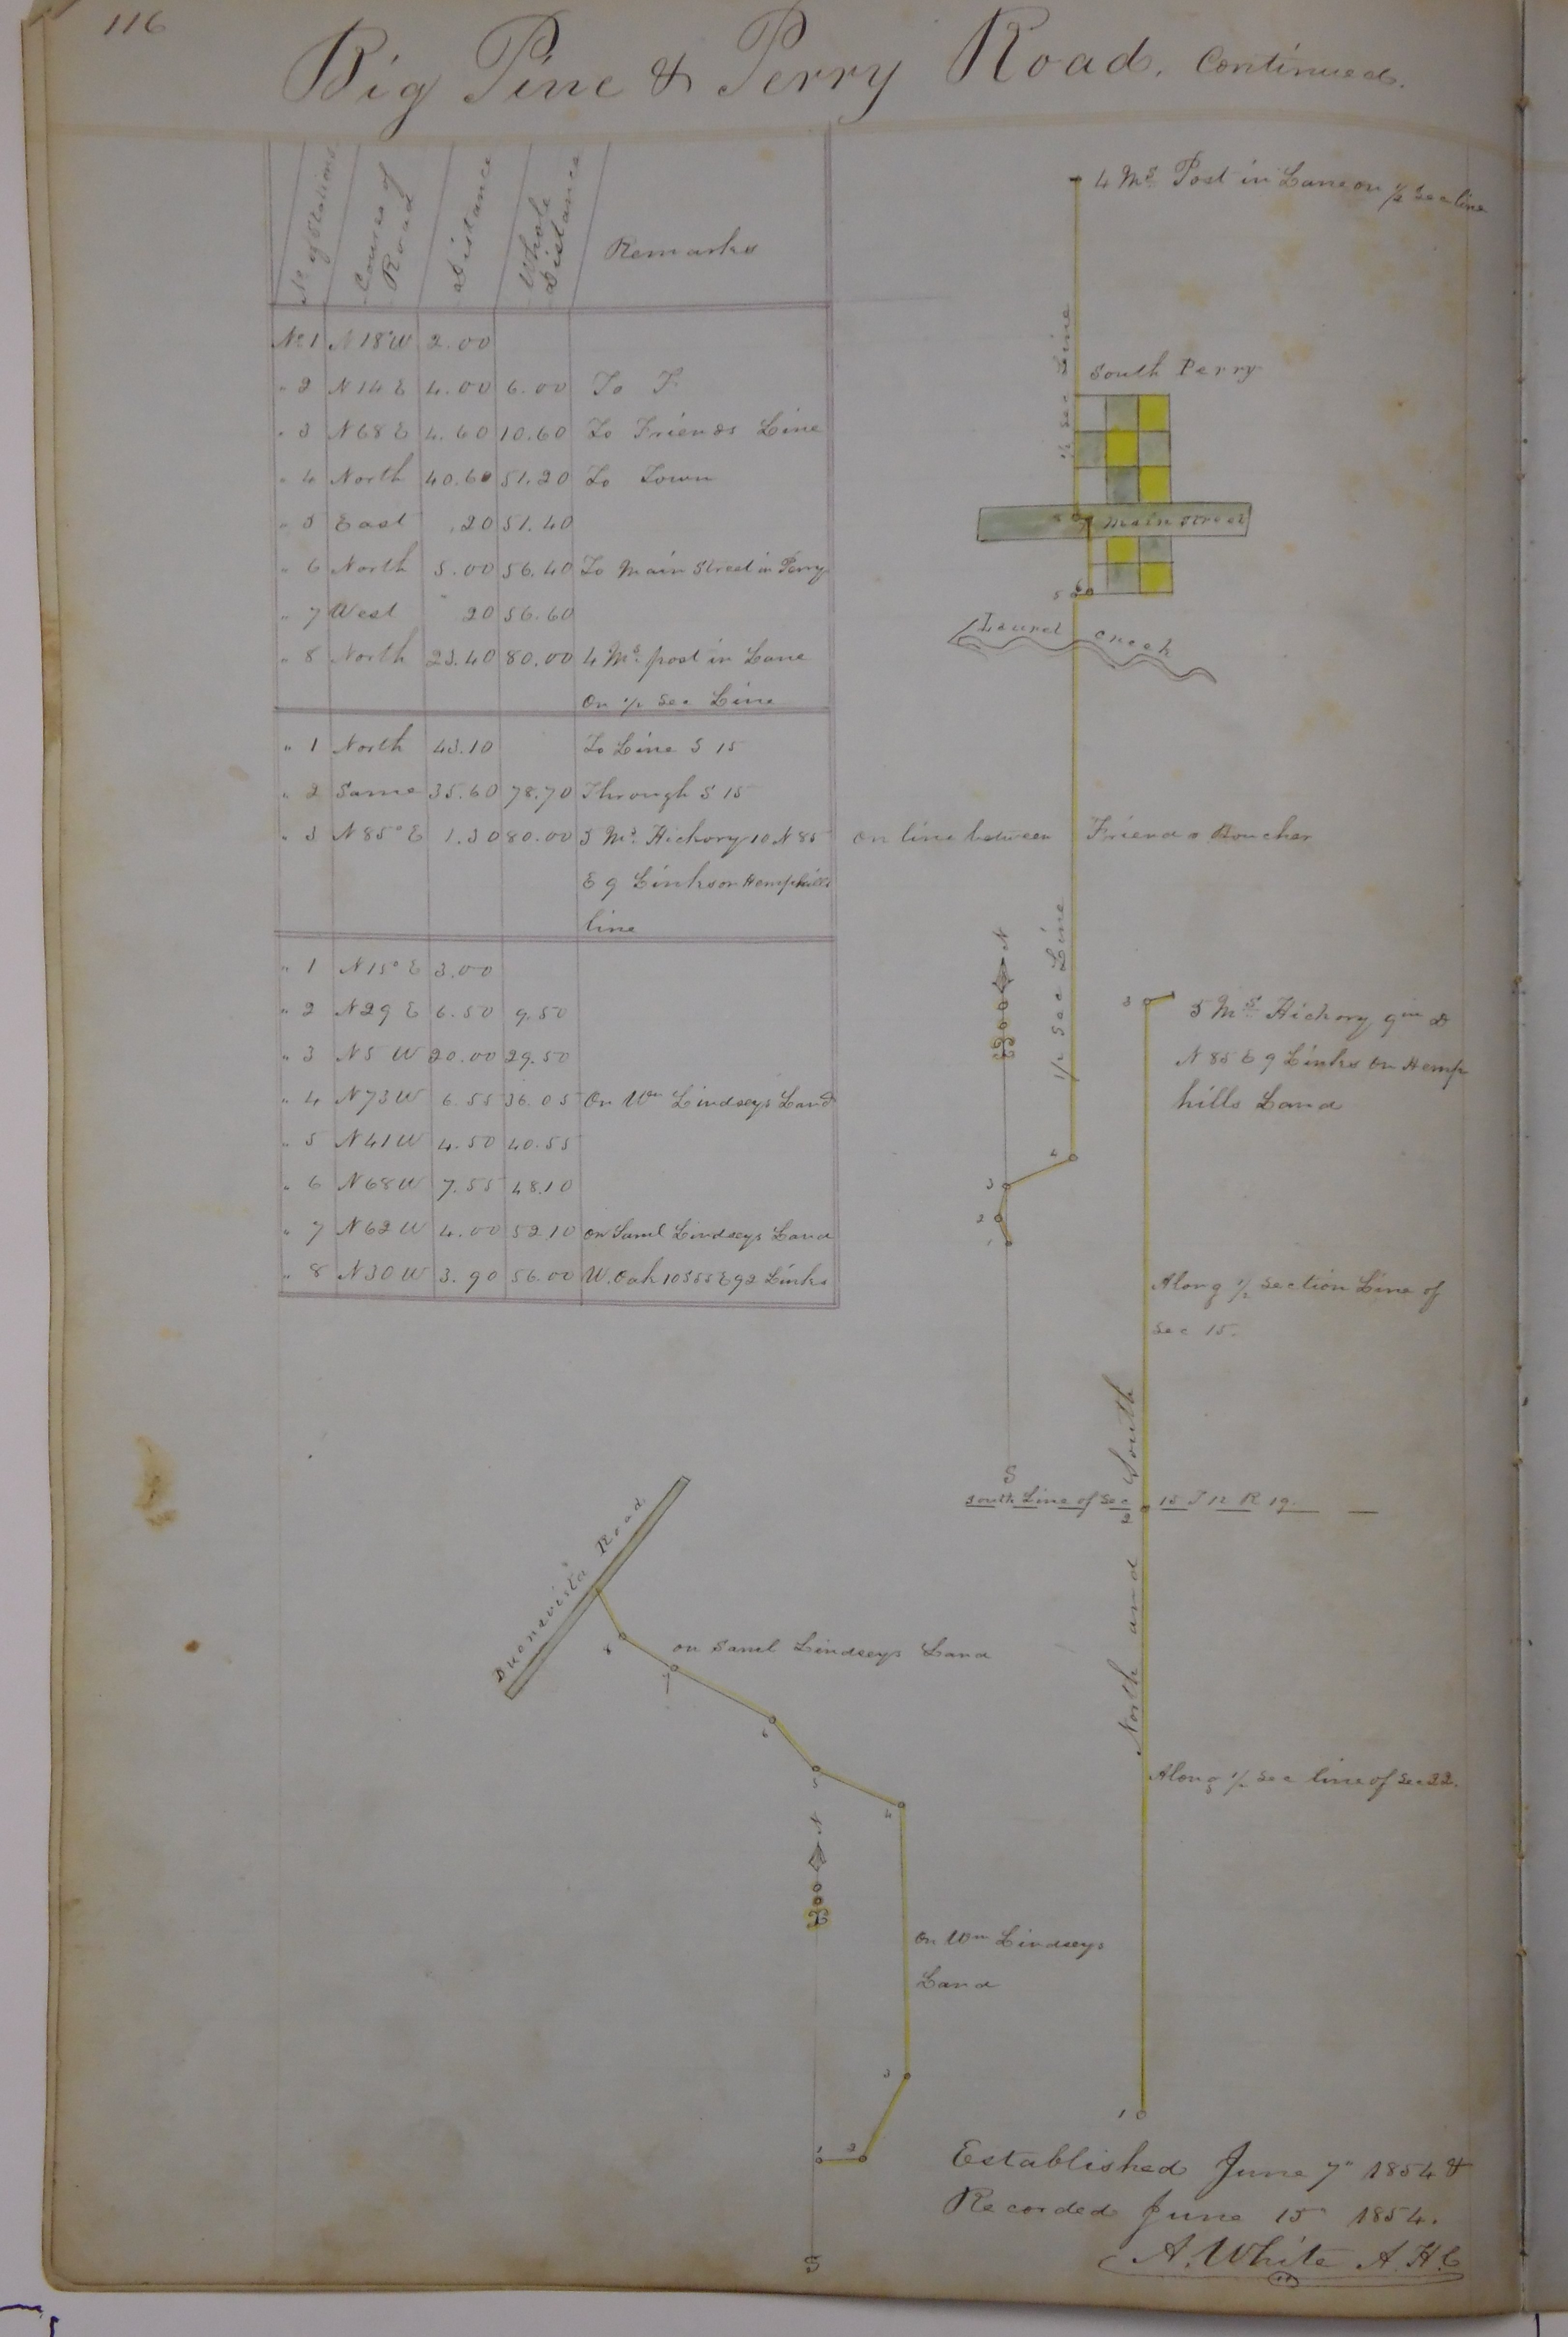 116
Big Pine & Perry Road. Continued.
No of Stations
Courses of Road
Distance
Whole Distance
Remarks
No 1 N 18° W 2.00
" 2 N 14 E 4.00 6.00 To F
" 3 N 68 E 4.60 10.60 To Friends Line
" 4 North 40.60 51.20 To Town
" 5 East .20 51.40
" 6 North 5.00 56.40 To Main Street in Perry
" 7 West 20 56.60
" 8 North 23.40 80.00 4 Ms. post in Lane
On 1/2 Sec Line
" 1 North 43.10 To Line S 15
" 2 Same 35.60 78.70 Through S 15
" 3 N 85° E 1.30 80.00 5 Ms. Hickory 10 N 85
E 9 Links on Hemphills
line
" 1 N 15° E 3.00
" 2 N 29 E 6.50 9.50
" 3 N 5 W 20.00 29.50
" 4 N 73 W 6.55 36.05 On Wm Lindseys Land
" 5 N 41 W 4.50 40.55
" 6 N 68 W 7.55 48.10
" 7 N 62 W 4.00 52.10 on Saml Lindseys Land
" 8 N 30 W 3.90 56.00 W. Oak 10 S 55 E 92 Links
4 Ms. Post in Lane on 1/2 Sec line
1/2 Sec Line
South Perry
Main Street
5 6
Laurel creek
on line between Friend & Boucher
N
1/2 Sec Line
4
3
2
1
S
3
5 Ms. Hickory 9 in D
N 85 E 9 Links on Hemp
hills Land
Along 1/2 Section Line of
Sec 15.
South Line of Sec 15 T 12 R 19.
2
North and South
Along 1/2 Sec line of Sec 22.
1
Buenavista Road
on Saml Lindseys Land
8
7
6
5
4
N
On Wm Lindseys
Land
3
1 2
S
Established June 7" 1854 &
Recorded June 15 1854.
A. White A.H.C